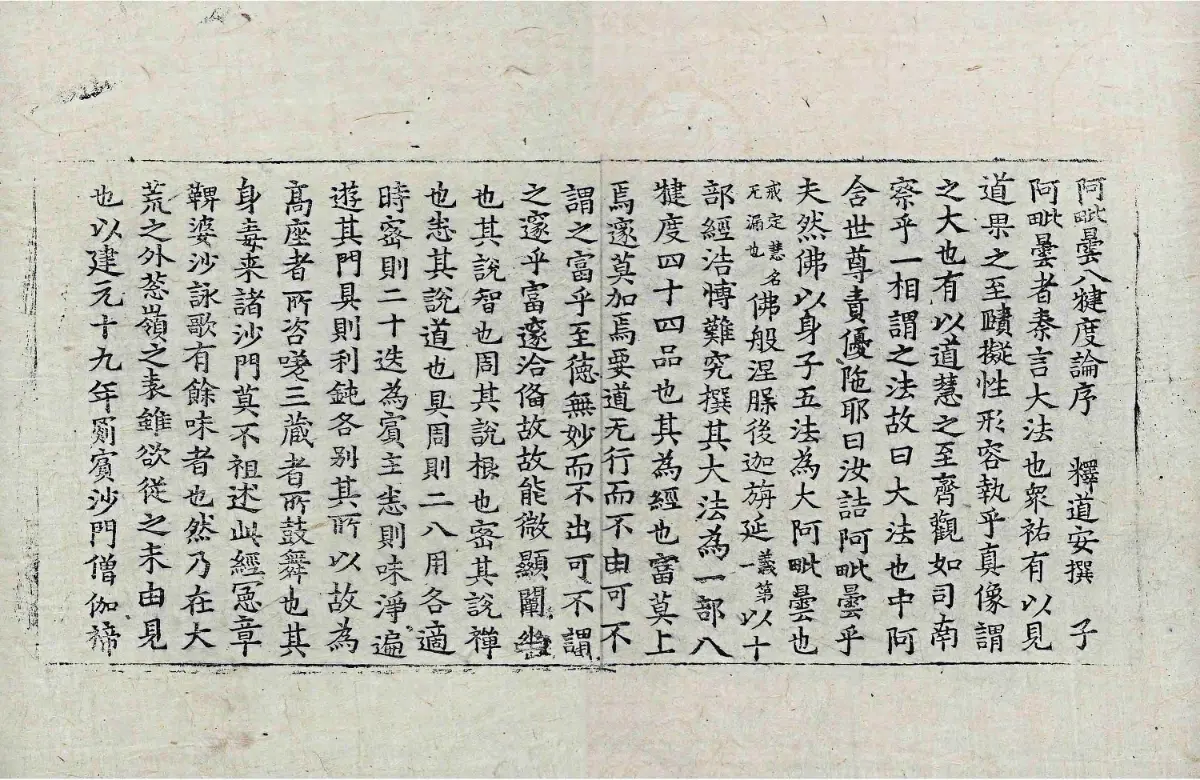 阿毗曇八犍度論序 釋道安撰 子
阿毗曇者秦言大法也衆祐有以見
道果之至賾擬性形容執乎真像謂
之大也有以道慧之至齊觀如司南
察乎一相謂之法故曰大法也中阿
含世尊責優陁耶曰汝詰阿毗曇乎
夫然佛以身子五法為大阿毗曇也
戒定慧名
无漏也
佛般涅槃後迦旃延
義第
一
以十
部經浩博難究撰其大法為一部八
犍度四十四品也其為經也富莫上
焉邃莫加焉要道无行而不由可不
謂之富乎至德無妙而不出可不謂
之邃乎富邃洽俻故故能微顯闡幽
也其說智也周其說根也密其說禪
也悉其說道也具周則二八用各適
時密則二十迭為賓主悉則味淨遍
遊其門具則利鈍各别其所以故為
髙座者所咨嗟三藏者所鼓舞也其
身毒来諸沙門莫不祖述此經憲章
鞞婆沙詠歌有餘味者也然乃在大
荒之外葱嶺之表雖欲從之未由見
也以建元十九年罽賓沙門僧伽禘